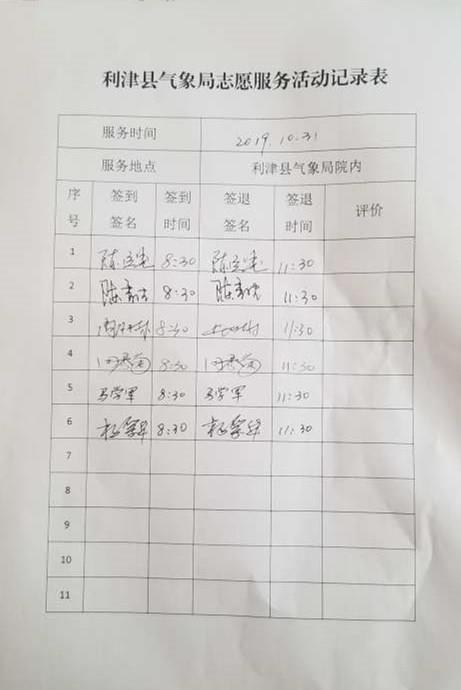 利津县气象局志愿服务活动记录表
服务时间 2019.10.31
服务地点 利津县气象局院内
序号 签到签名 签到时间 签退签名 签退时间 评价
1 8:30 11:30
2 8:30 11:30
3 8:30 11:30
4 8:30 11:30
5 马学军 8:30 马学军 11:30
6 8:30 11:30
7
8
9
10
11